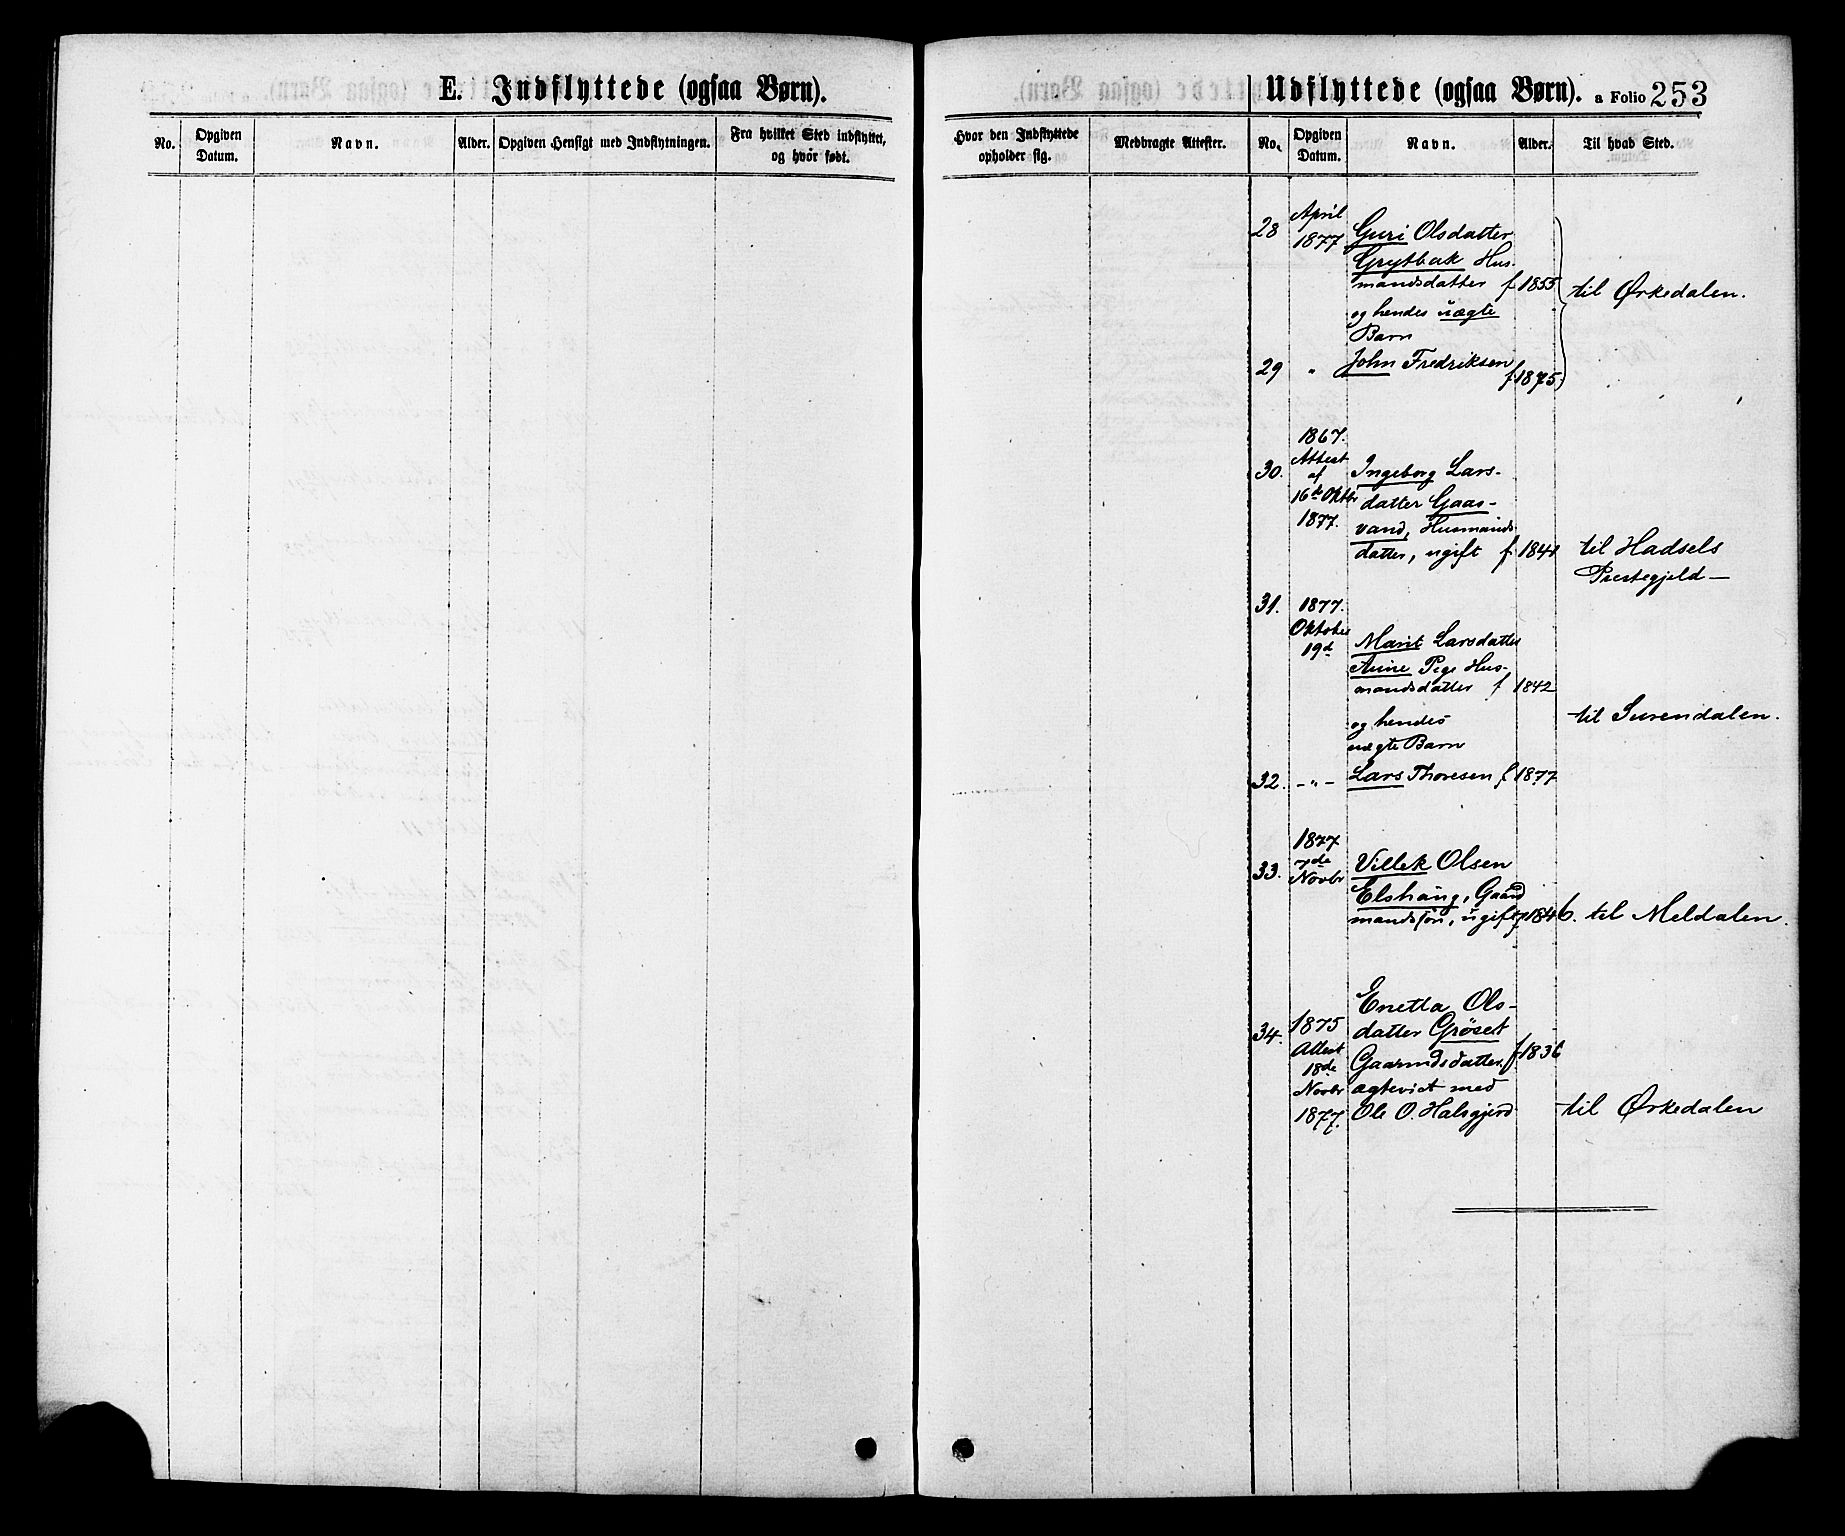 E. Indflyttede (ogsaa Børn).
No.
Opgiven Datum.
Navn.
Alder.
Opgiven Hensigt med Indflytningen.
Fra hvilket Sted indflyttet, og hvor født.
Udflyttede (ogsaa Børn). a Folio 253
Hvor den Indflyttede opholder sig.
Medbragte Attester.
No.
Opgiven Datum.
Navn.
Alder.
Til hvad Sted.
28 April 1877 Guri Olsdatter
Grytbak Hus-
mandsdatter f 1855 til Ørkedalen.
og hendes uægte
Barn
29 " John Fredriksen
f 1875.
1867.
30. Attest af 16de Oktbr 1877. Ingeborg Lars-
datter Gaas-
vand, Husmands
datter, ugift f. 1841 til Hadsels
Prestegjeld—
31. 1877. Oktober 19d Marit Larsdatter
Pige Hus-
mandsdatter f 1842
og hendes til Surendalen.
uægte Barn
32. -"- Lars Thoresen f 1877
1877
33. 7de Novbr Villek Olsen
Elshaug, Gaard
mandssøn, ugift f 1846. til Meldalen.
Enetta Ols-
34. 1875 datter Grøset
Attest 18de Gaarmdsdatter, f. 1836
Novbr ægteviet med
1877. Ole O. Halsgjerd til Ørkedalen